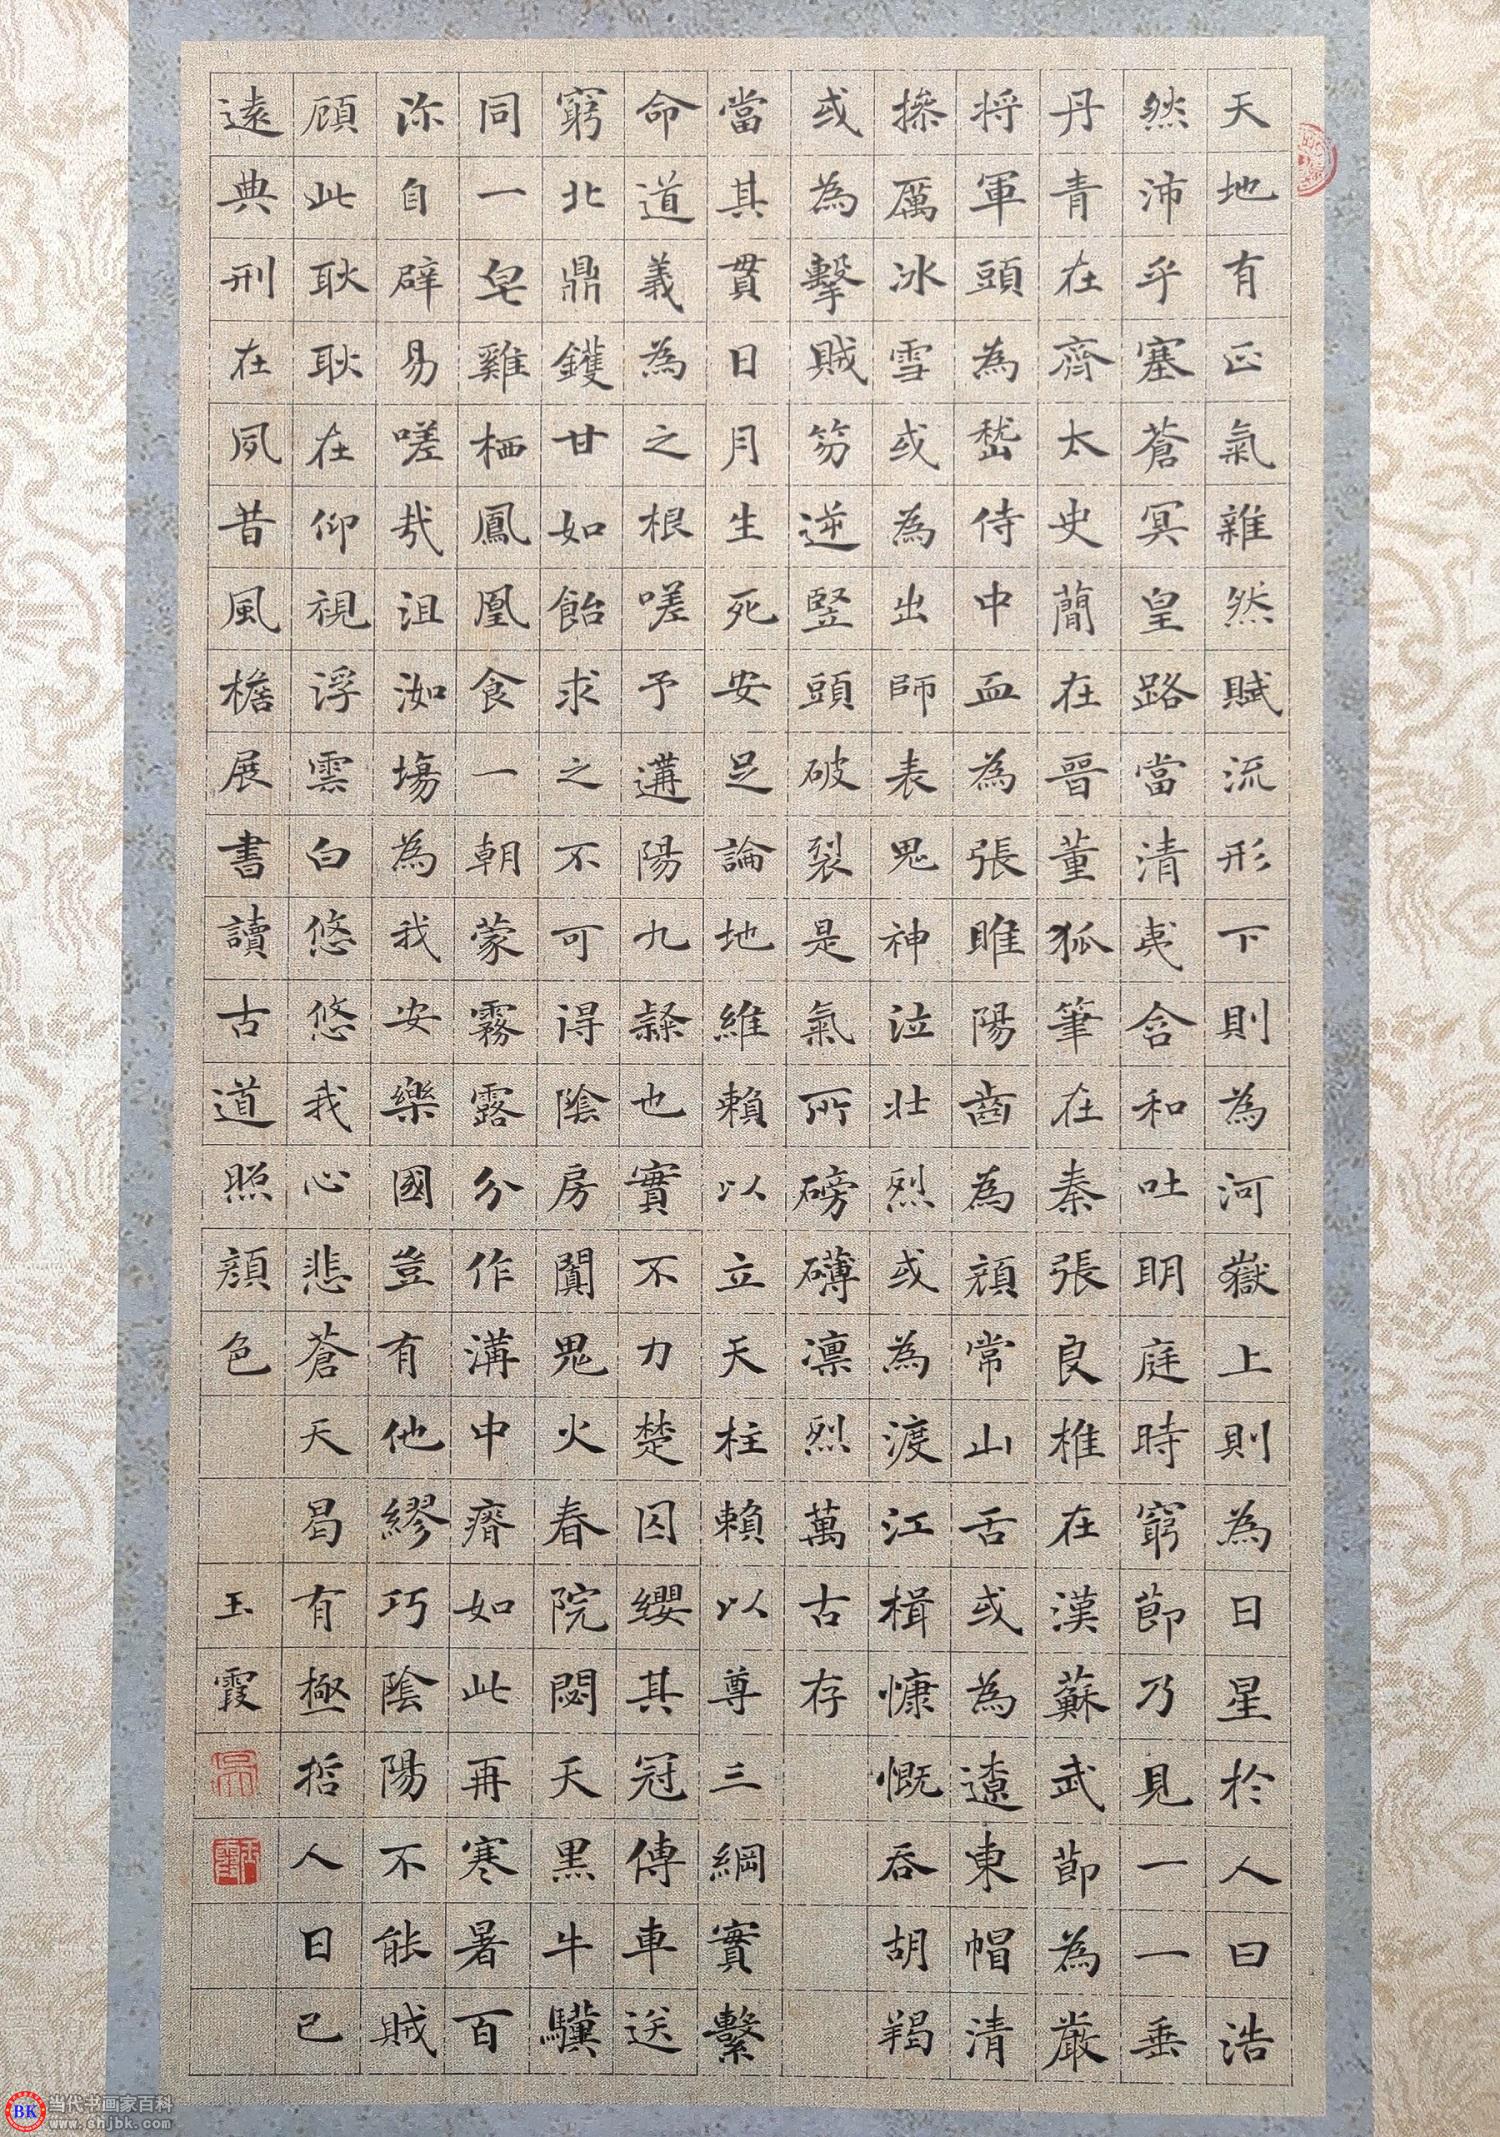 天地有正氣雜然賦流形下則為河嶽上則為日星於人曰浩
然沛乎塞蒼冥皇路當清夷含和吐明庭時窮節乃見一一垂
丹青在齊太史簡在晉董狐筆在秦張良椎在漢蘇武節為嚴
將軍頭為嵇侍中血為張睢陽齒為顏常山舌或為遼東帽清
操厲冰雪或為出師表鬼神泣壯烈或為渡江楫慷慨吞胡羯
或為擊賊笏逆豎頭破裂是氣所磅礴凛烈萬古存
當其貫日月生死安足論地維賴以立天柱賴以尊三綱實繫
命道義為之根嗟予遘陽九隸也實不力楚囚纓其冠傳車送
窮北鼎鑊甘如飴求之不可得陰房闃鬼火春院閟天黑牛驥
同一皂雞栖鳳凰食一朝蒙霧露分作溝中瘠如此再寒暑百
沵自辟易嗟哉沮洳場為我安樂國豈有他繆巧陰陽不能賊
顧此耿耿在仰視浮雲白悠悠我心悲蒼天曷有極哲人日已
遠典刑在夙昔風檐展書讀古道照顏色 玉霞
当代书画家百科
www.shjbk.com
BK